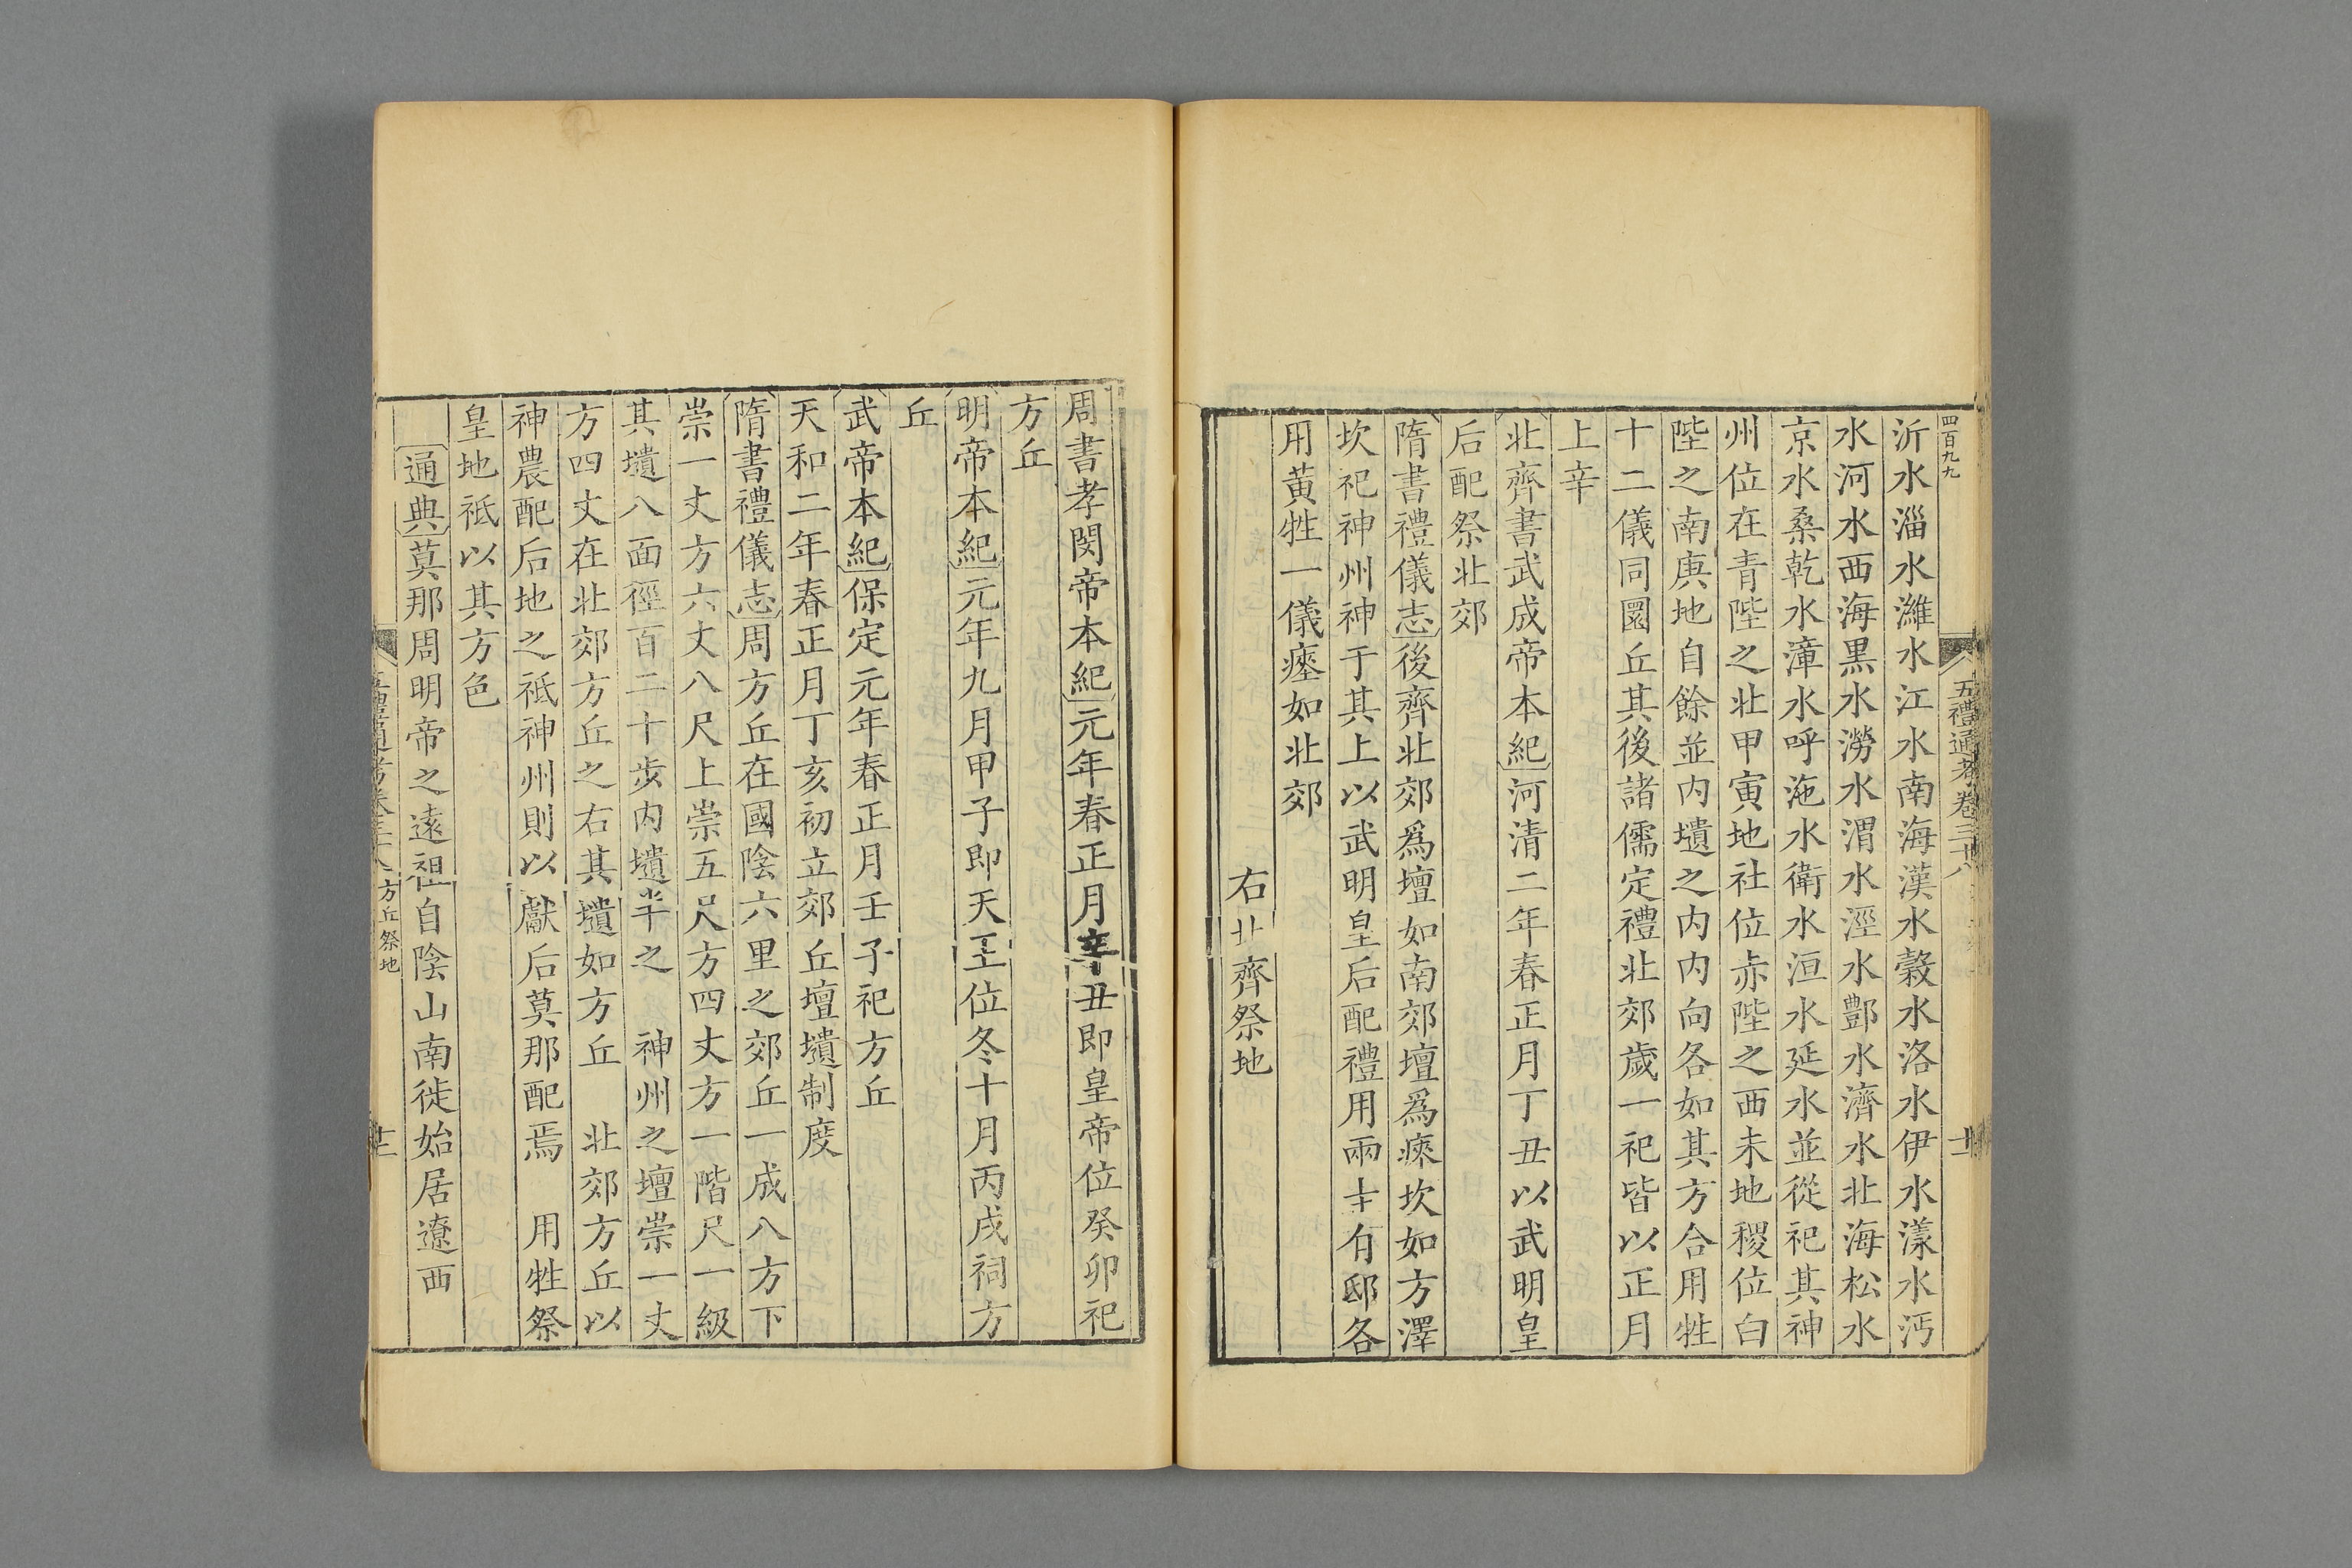 四百九九
五禮通考卷三十八
十一
沂水淄水濰水江水南海漢水穀水洛水伊水漾水沔
水河水西海黒水澇水渭水涇水酆水濟水北海松水
京水桑乾水漳水呼沱水衛水洹水延水並從祀其神
州位在青陛之北甲寅地社位赤陛之西未地稷位白
陛之南庚地自餘並內壝之內內向各如其方合用牲
十二儀同圜丘其後諸儒定禮北郊歲一祀皆以正月
上辛
北齊書武成帝本紀河清二年春正月丁丑以武明皇
后配祭北郊
隋書禮儀志後齊北郊爲壇如南郊壇爲瘞坎如方澤
坎祀神州神于其上以武明皇后配禮用兩圭有邸各
用黃牲一儀瘞如北郊
右北齊祭地
周書孝閔帝本紀元年春正月辛丑即皇帝位癸卯祀
方丘
明帝本紀元年九月甲子即天王位冬十月丙戌祠方
丘
武帝本紀保定元年春正月壬子祀方丘
天和二年春正月丁亥初立郊丘壇壝制度
隋書禮儀志周方丘在國陰六里之郊丘一成八方下
崇一丈方六丈八尺上崇五尺方四丈方一階尺一級
其壝八面徑百二十步內壝半之　神州之壇崇一丈
方四丈在北郊方丘之右其壝如方丘　北郊方丘以
神農配后地之祇神州則以獻后莫那配焉　用牲祭
皇地祇以其方色
通典莫那周明帝之遠祖自陰山南徙始居遼西
五禮通考卷三十八方丘祭地
十二